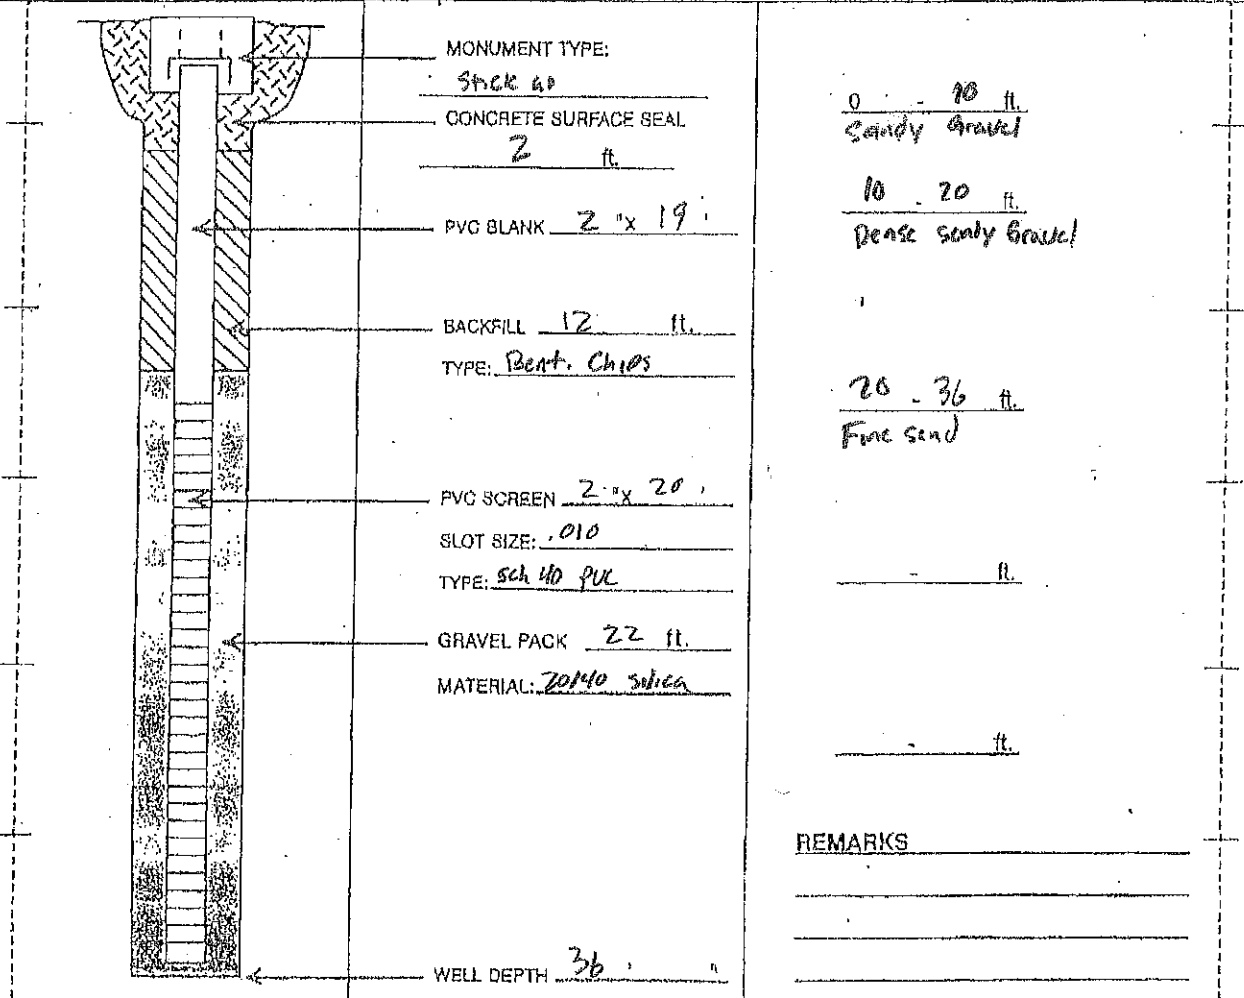 MONUMENT TYPE:
Stick up
CONCRETE SURFACE SEAL
2 ft.
PVC BLANK 2 "x 19 '
BACKFILL 12 ft.
TYPE: Bent. Chips
PVC SCREEN 2 "x 20 '
SLOT SIZE: .010
TYPE: sch 40 PVC
GRAVEL PACK 22 ft.
MATERIAL: 20/40 silica
WELL DEPTH 36 ' "
0 - 10 ft.
Sandy Gravel
10 - 20 ft.
Dense sandy Gravel
20 - 36 ft.
Fine sand
- ft.
- ft.
REMARKS